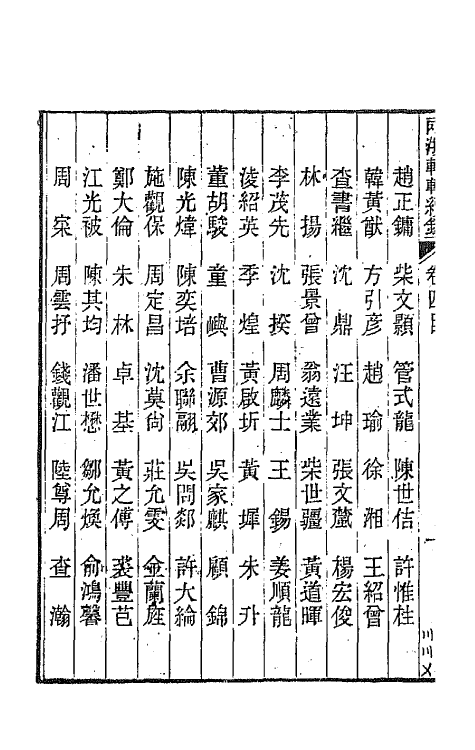 兩浙輶軒續錄 卷四目 一
趙正鏞 柴文顥 管式龍 陳世佶 許惟枚
韓黃猷 方引彥 趙瑜 徐湘 王紹曾
查書繼 沈鼎 汪坤 張文虋 楊宏俊
林揚 張景曾 翁遠業 柴世疆 黃道暉
李茂先 沈揆 周麟士 王錫 姜順龍
淩紹英 季煌 黃啟圻 黃墀 朱升
董胡駿 童嶼 曹源郊 吳家麒 顧錦
陳光煒 陳奕培 余聯翮 吳問郯 許大綸
施觀保 周定昌 沈莫尙 莊允雯 金蘭
鄭大倫 朱林 卓基 黃之傅 裘豐芑
江光被 陳其均 潘世懋 鄒允煥 俞鴻馨
周寀 周雲抒 錢觀江 陸尊周 查瀚